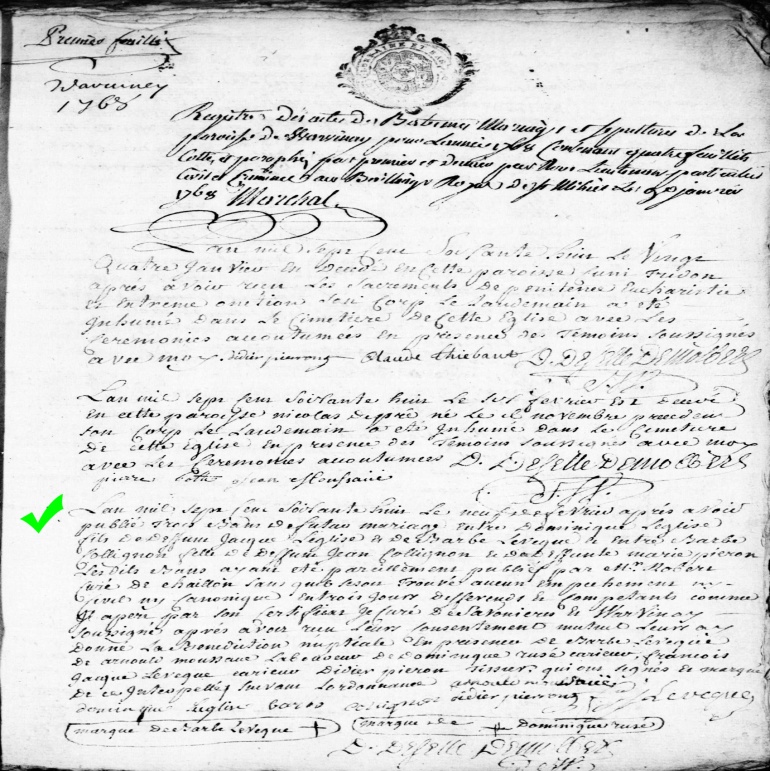 Premier feuillet
Varviney
1768
Registre Des actes de Batemes Mariages et sepultures de La
paroisse de Varviney pour Lannée 1768 Contenant quatre feuillets
Cottés et paraphés par premier et dernier par Nous Lieutenant particulier
Civil et Criminel au Bailliage Royal De St Mihiel Le janvier
1768 Marchal
Lan mil sept cent Soixante huit Le Vingt
Quatre Janvier En decedé en Cette paroisse
après avoir reçu Les Sacrements de penitence Eucharistie
et Extreme onction son Corp Le Landemain a eté
Inhumé dans Le Cimetiere De Cette Eglise avec Les
Ceremonies accoutumées en presence des Temoins soussignés
avec moy didier pierson Claude thiebaut D. Defelle Demolbert
Lan mil sept cent soixante huit Le fevrier Est decedé
en cette paroisse nicolas depré né le novembre precedent
son Corp Le Landemain a eté Inhumé dans Le Cimetiere
De cette Eglise En presence des Temoins soussignés avec moy
avec Les Ceremonies accoutumées D. Defelle Demolbert
pierre jean
Lan mil sept cent soixante huit Le neuf de fevrier après avoir
publié Trois Bans de futur mariage entre Dominique Leglise
fils de deffunt Jacque Leglise et de Barbe Leveque et Entre Barbe
Collignon fille de deffunt Jean Collignon et de deffunte marie pieron
Lesdits Bans ayant eté pareillement publiés par Mr. Robert
curé de chaillon sans qu'il se soit Trouvé aucun Empechement ny
civil ny Canonique en trois Jours differends et Competants comme
Il apert par son Certificat Je curé de Savonieres et Varvinay
soussigné après avoir reçu Leurs Consentement mutuel Leur ay
donné La Benediction nuptiale En presence de Barbe Leveque
de arnould moussaux Laboureur de Dominique rusé carieur francois
Jacque Leveque carieur Didier pieron Tissier qui ont signés et marqué
de ce Interpellés suivant Lordonnance arnould
dominique leglise barbe colignon didier pierson Leveque
marque de Barbe Leveque marque de dominique rusé
D. Defelle Demolbert